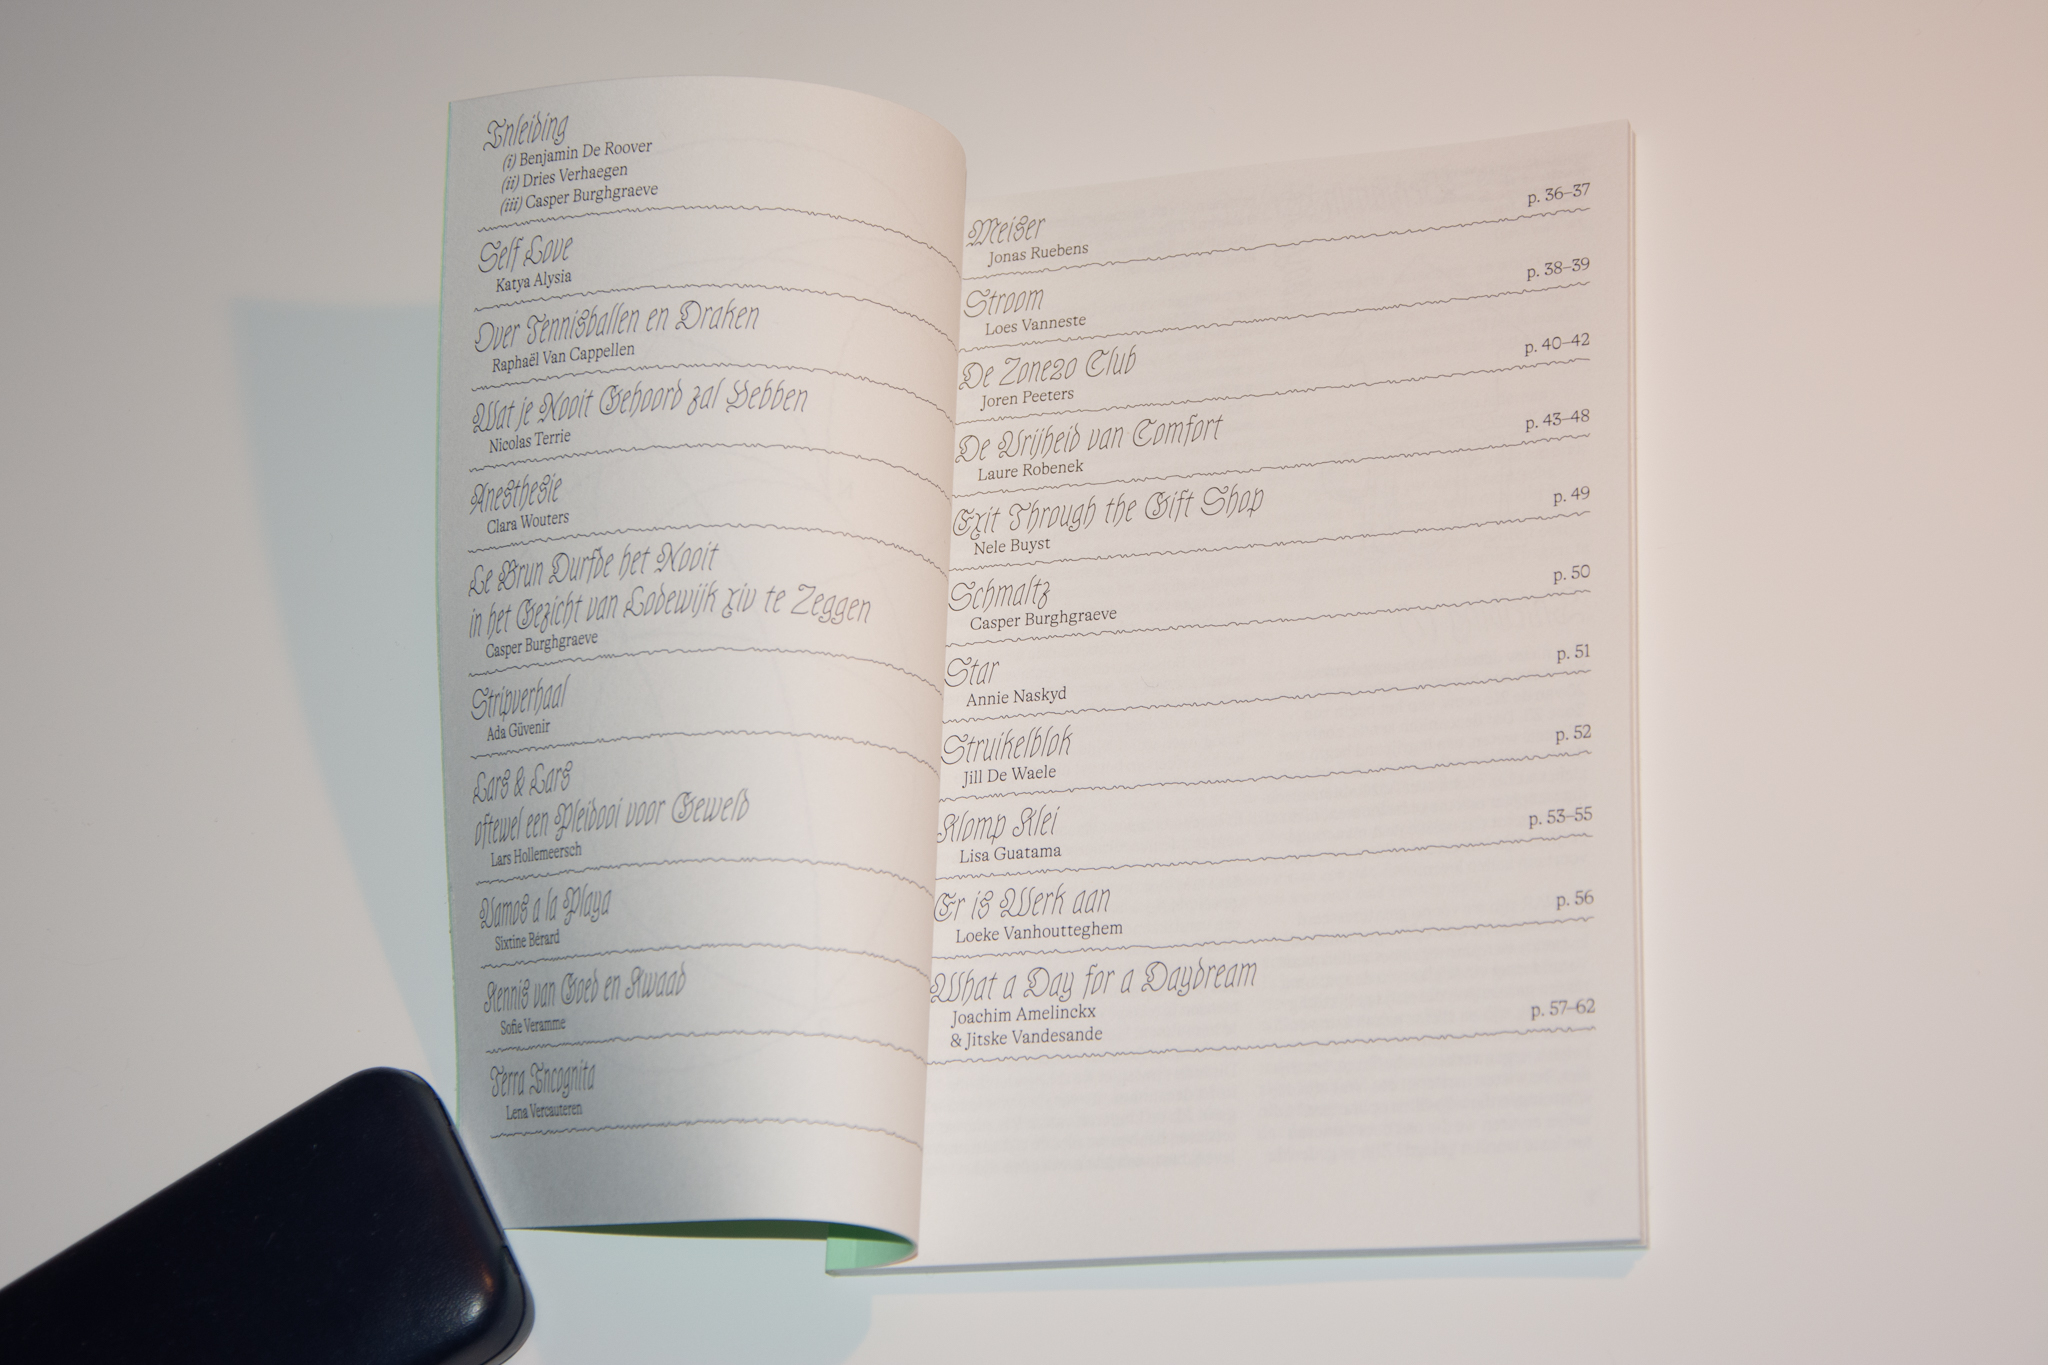 Inleiding
(i) Benjamin De Roover
(ii) Dries Verhaegen
(iii) Casper Burghgraeve
Self Love
Katya Alysia
Over Tennisballen en Draken
Raphaël Van Cappellen
Wat je Nooit Gehoord zal Hebben
Nicolas Terrie
Anesthesie
Clara Wouters
Le Brun Durfde het Nooit
in het Gezicht van Lodewijk xiv te Zeggen
Casper Burghgraeve
Stripverhaal
Ada Güvenir
Lars & Lars
oftewel een Pleidooi voor Geweld
Lars Hollemeersch
Vamos a la Playa
Sixtine Bérard
Kennis van Goed en Kwaad
Sofie Veramme
Terra Incognita
Lena Vercauteren
Meiser
Jonas Ruebens
p. 36–37
Stroom
Loes Vanneste
p. 38–39
De Zone20 Club
Joren Peeters
p. 40–42
De Vrijheid van Comfort
Laure Robenek
p. 43–48
Exit Through the Gift Shop
Nele Buyst
p. 49
Schmaltz
Casper Burghgraeve
p. 50
Star
Annie Naskyd
p. 51
Struikelblok
Jill De Waele
p. 52
Klomp Klei
Lisa Guatama
p. 53–55
Er is Werk aan
Loeke Vanhoutteghem
p. 56
What a Day for a Daydream
Joachim Amelinckx
& Jitske Vandesande
p. 57–62